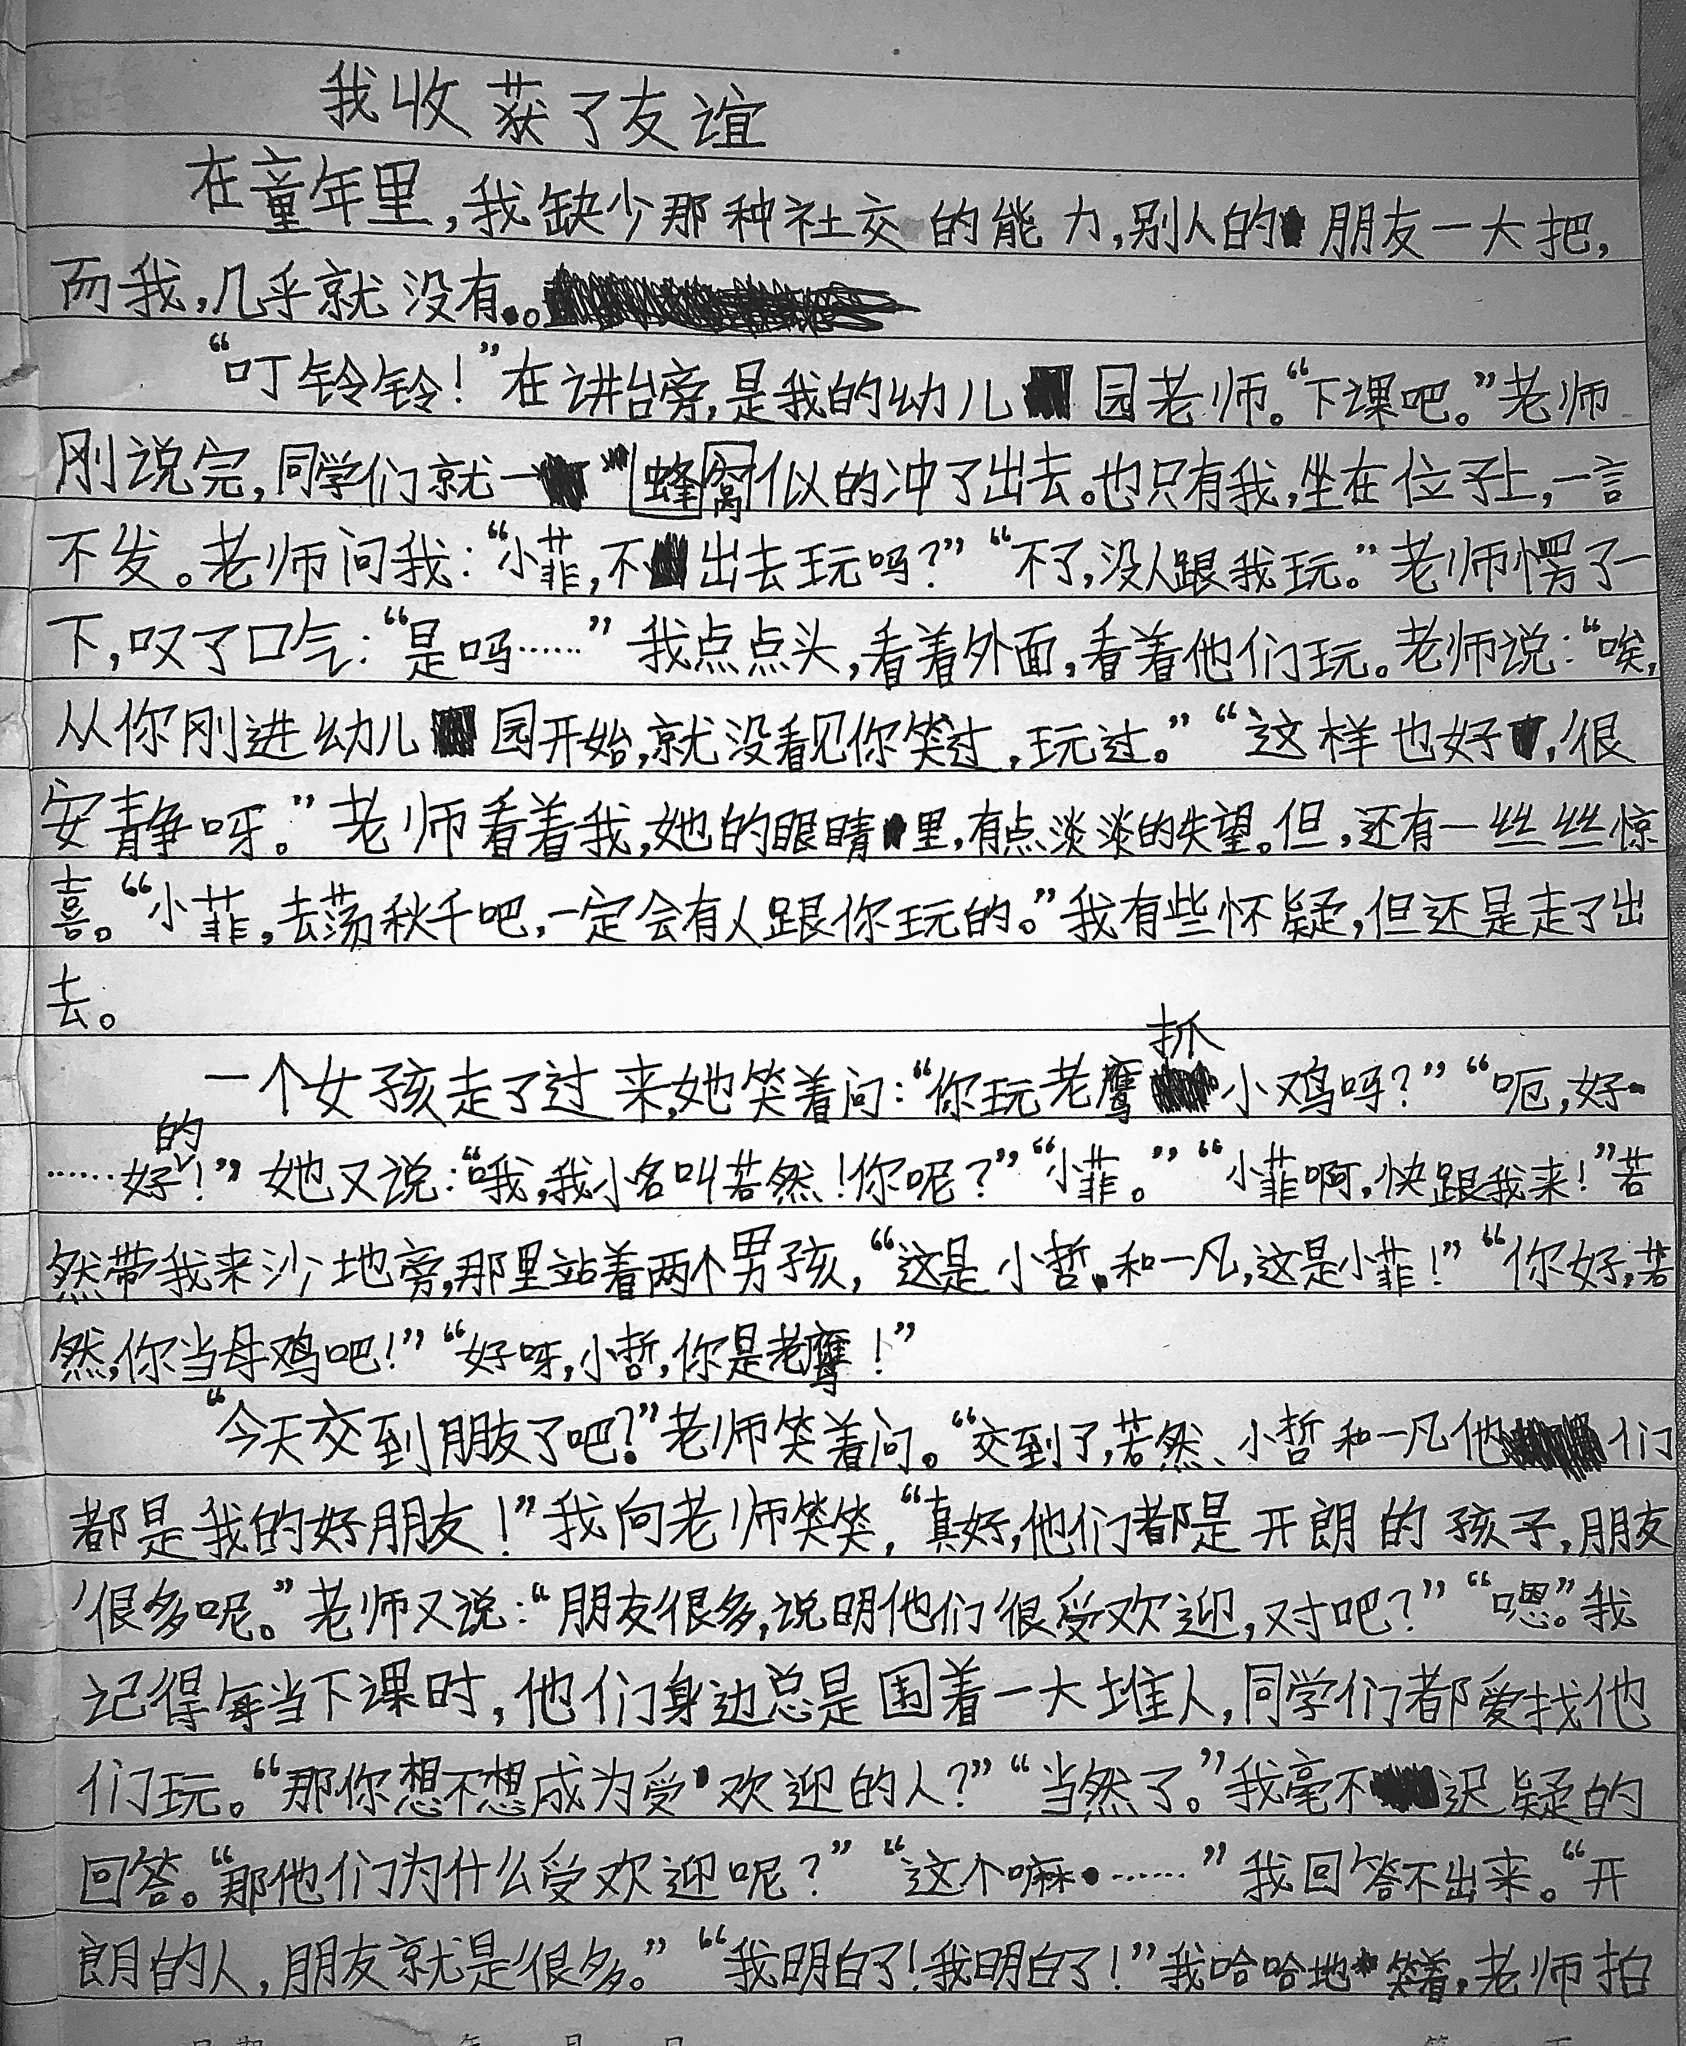 我收获了友谊
在童年里,我缺少那种社交的能力,别人的朋友一大把,
而我,几乎就没有。
“叮铃铃!”在讲台旁,是我的幼儿园老师。“下课吧。”老师
刚说完,同学们就一蜂窝似的冲了出去。也只有我,坐在位子上,一言
不发。老师问我:“小菲,不出去玩吗?”“不了,没人跟我玩。”老师愣了一
下,叹了口气:“是吗……”我点点头,看着外面,看着他们玩。老师说:“唉,
从你刚进幼儿园开始,就没看见你笑过,玩过。”“这样也好,很
安静呀。”老师看着我,她的眼睛里,有点淡淡的失望。但,还有一丝丝惊
喜。“小菲,去荡秋千吧,一定会有人跟你玩的。”我有些怀疑,但还是走了出
去。
一个女孩走了过来,她笑着问:“你玩老鹰抓小鸡吗?”“呃,好
……好的!”她又说:“哦,我小名叫若然!你呢?”“小菲。”“小菲啊,快跟我来!”若
然带我来沙地旁,那里站着两个男孩,“这是小哲和一凡,这是小菲!”“你好,若
然,你当母鸡吧!”“好呀,小哲,你是老鹰!”
“今天交到朋友了吧?”老师笑着问。“交到了,若然、小哲和一凡他们
都是我的好朋友!”我向老师笑笑,“真好,他们都是开朗的孩子,朋友
很多呢。”老师又说:“朋友很多,说明他们很受欢迎,对吧?”“嗯。”我
记得每当下课时,他们身边总是围着一大堆人,同学们都爱找他
们玩。“那你想不想成为受欢迎的人?”“当然了。”我毫不迟疑的
回答。“那他们为什么受欢迎呢?”“这个嘛……”我回答不出来。“开
朗的人,朋友就是很多。”“我明白了!我明白了!”我哈哈地笑着,老师拍